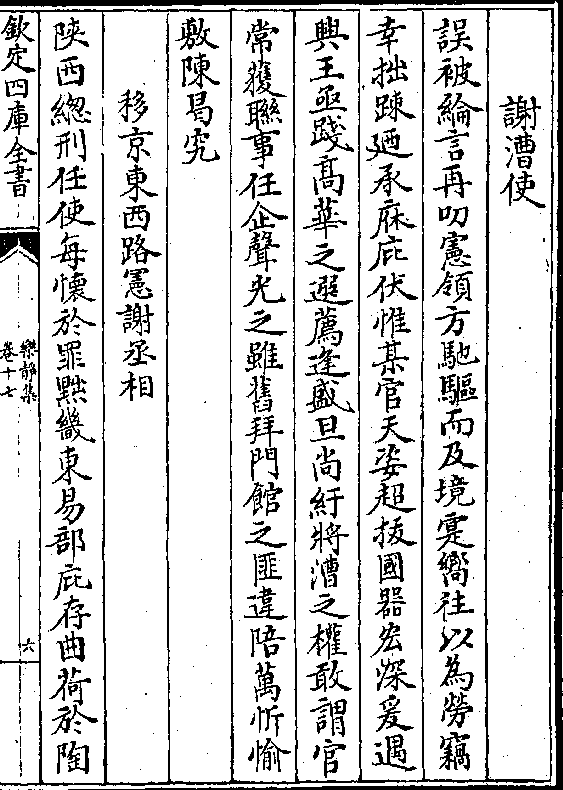 謝漕使
誤被綸言再叨憲領方馳驅而及境寔嚮往以為勞竊
幸拙踈廼承庥庇伏惟某官天姿超拔國器宏深爰遇
興王亟踐髙華之選薦逢盛旦尚紆將漕之權敢謂官
常獲聯事任企聲光之雖舊拜門館之匪違陪萬忻愉
敷陳曷究
移京東西路憲謝丞相
陝西總刑任使每懷於罪黜畿東易部庇存曲荷於陶
欽定四庫全書
樂靜集
卷十七
六